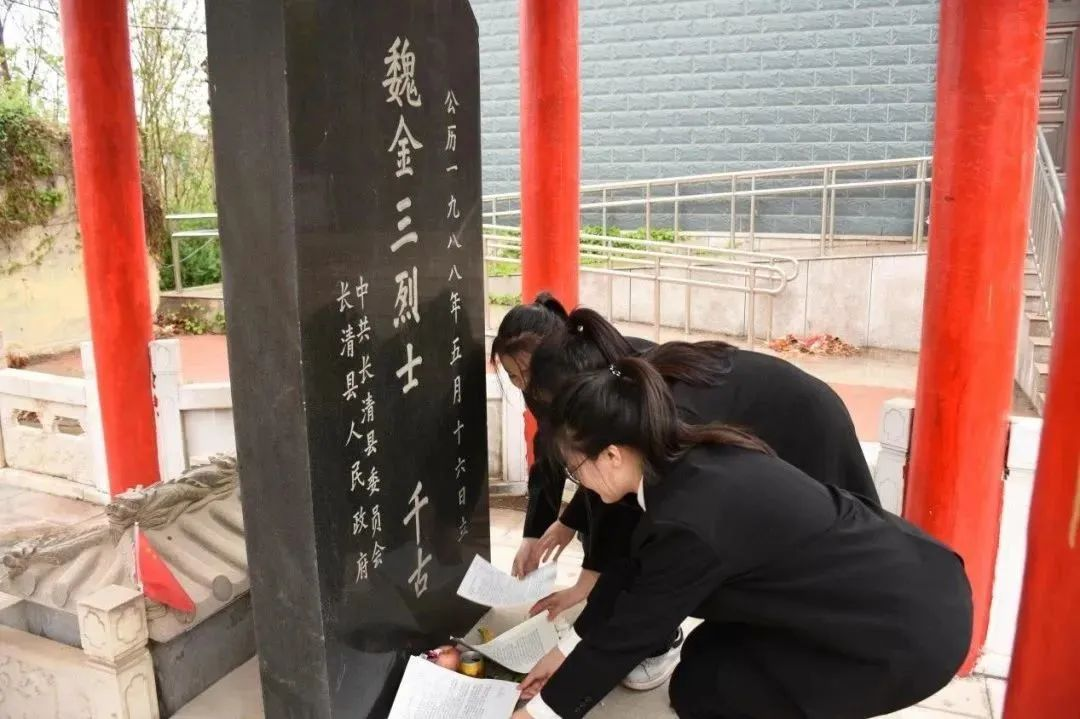 公历一九八八年五月十六日立
魏金三烈士 千古
中共长清县委员会
长清县人民政府